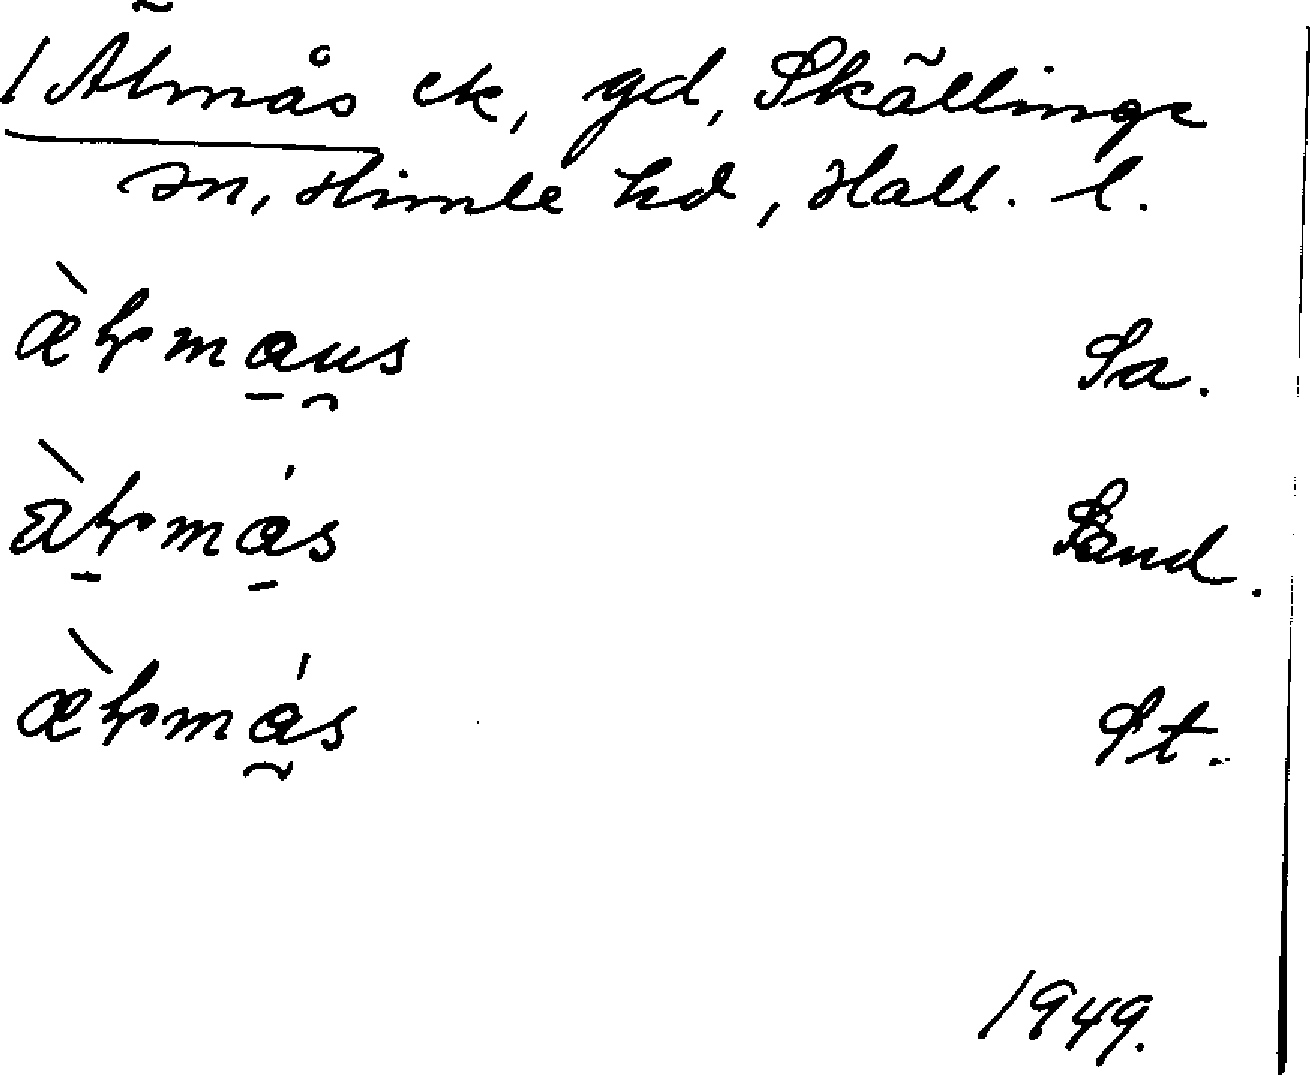 /Älmås ek, gd, Skällinge
sn, Himle hd, Hall. l.
æ̀ɫma̱u̯s Sa.
Sand.
æ̀ɫmá̰s St.
1949.